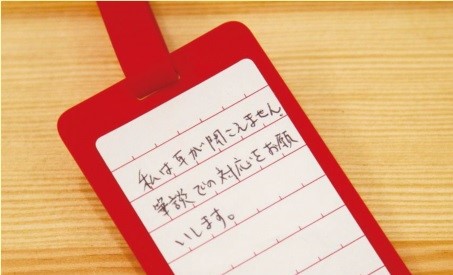 私は耳が聞こえません
筆談での対応をお願
いします。